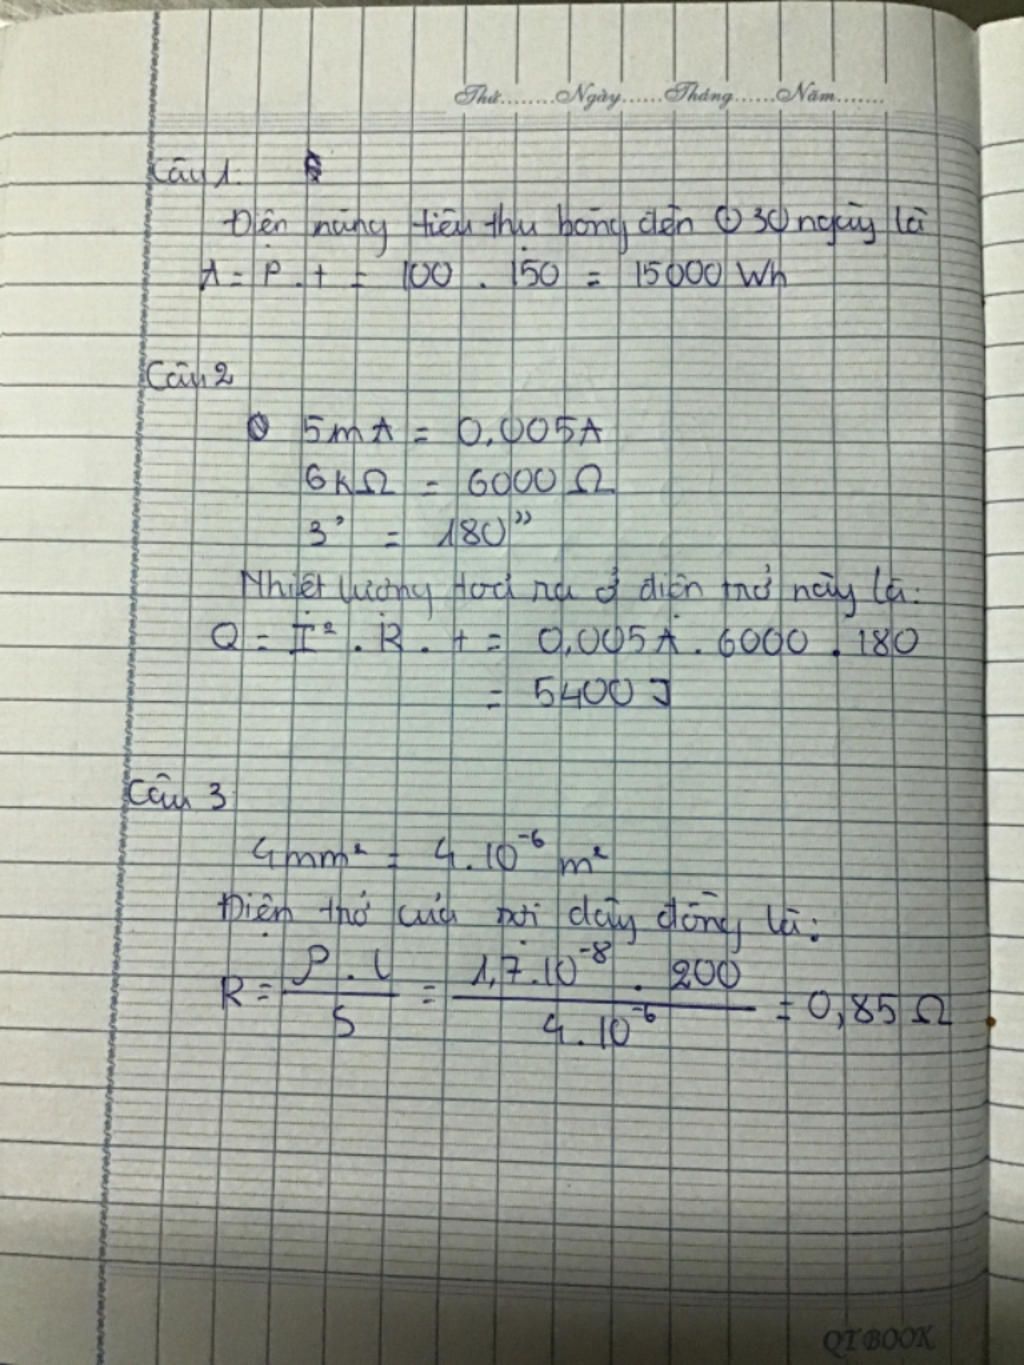 Thứ........Ngày......Tháng......Năm.......
Câu 1:
Điện năng tiêu thụ bóng đèn 30 ngày là
A = P . t = 100 . 150 = 15000 Wh
Câu 2
5mA = 0,005A
6kΩ = 6000 Ω
3' = 180"
Nhiệt lượng toả ra ở điện trở này là:
Q = I² . R . t = 0,005A . 6000 . 180
= 5400 J
Câu 3
4mm² = 4.10⁻⁶ m²
Điện trở của sợi dây đồng là:
R = ρ . l / S = 1,7.10⁻⁸ . 200 / 4.10⁻⁶ = 0,85 Ω
QT BOOK